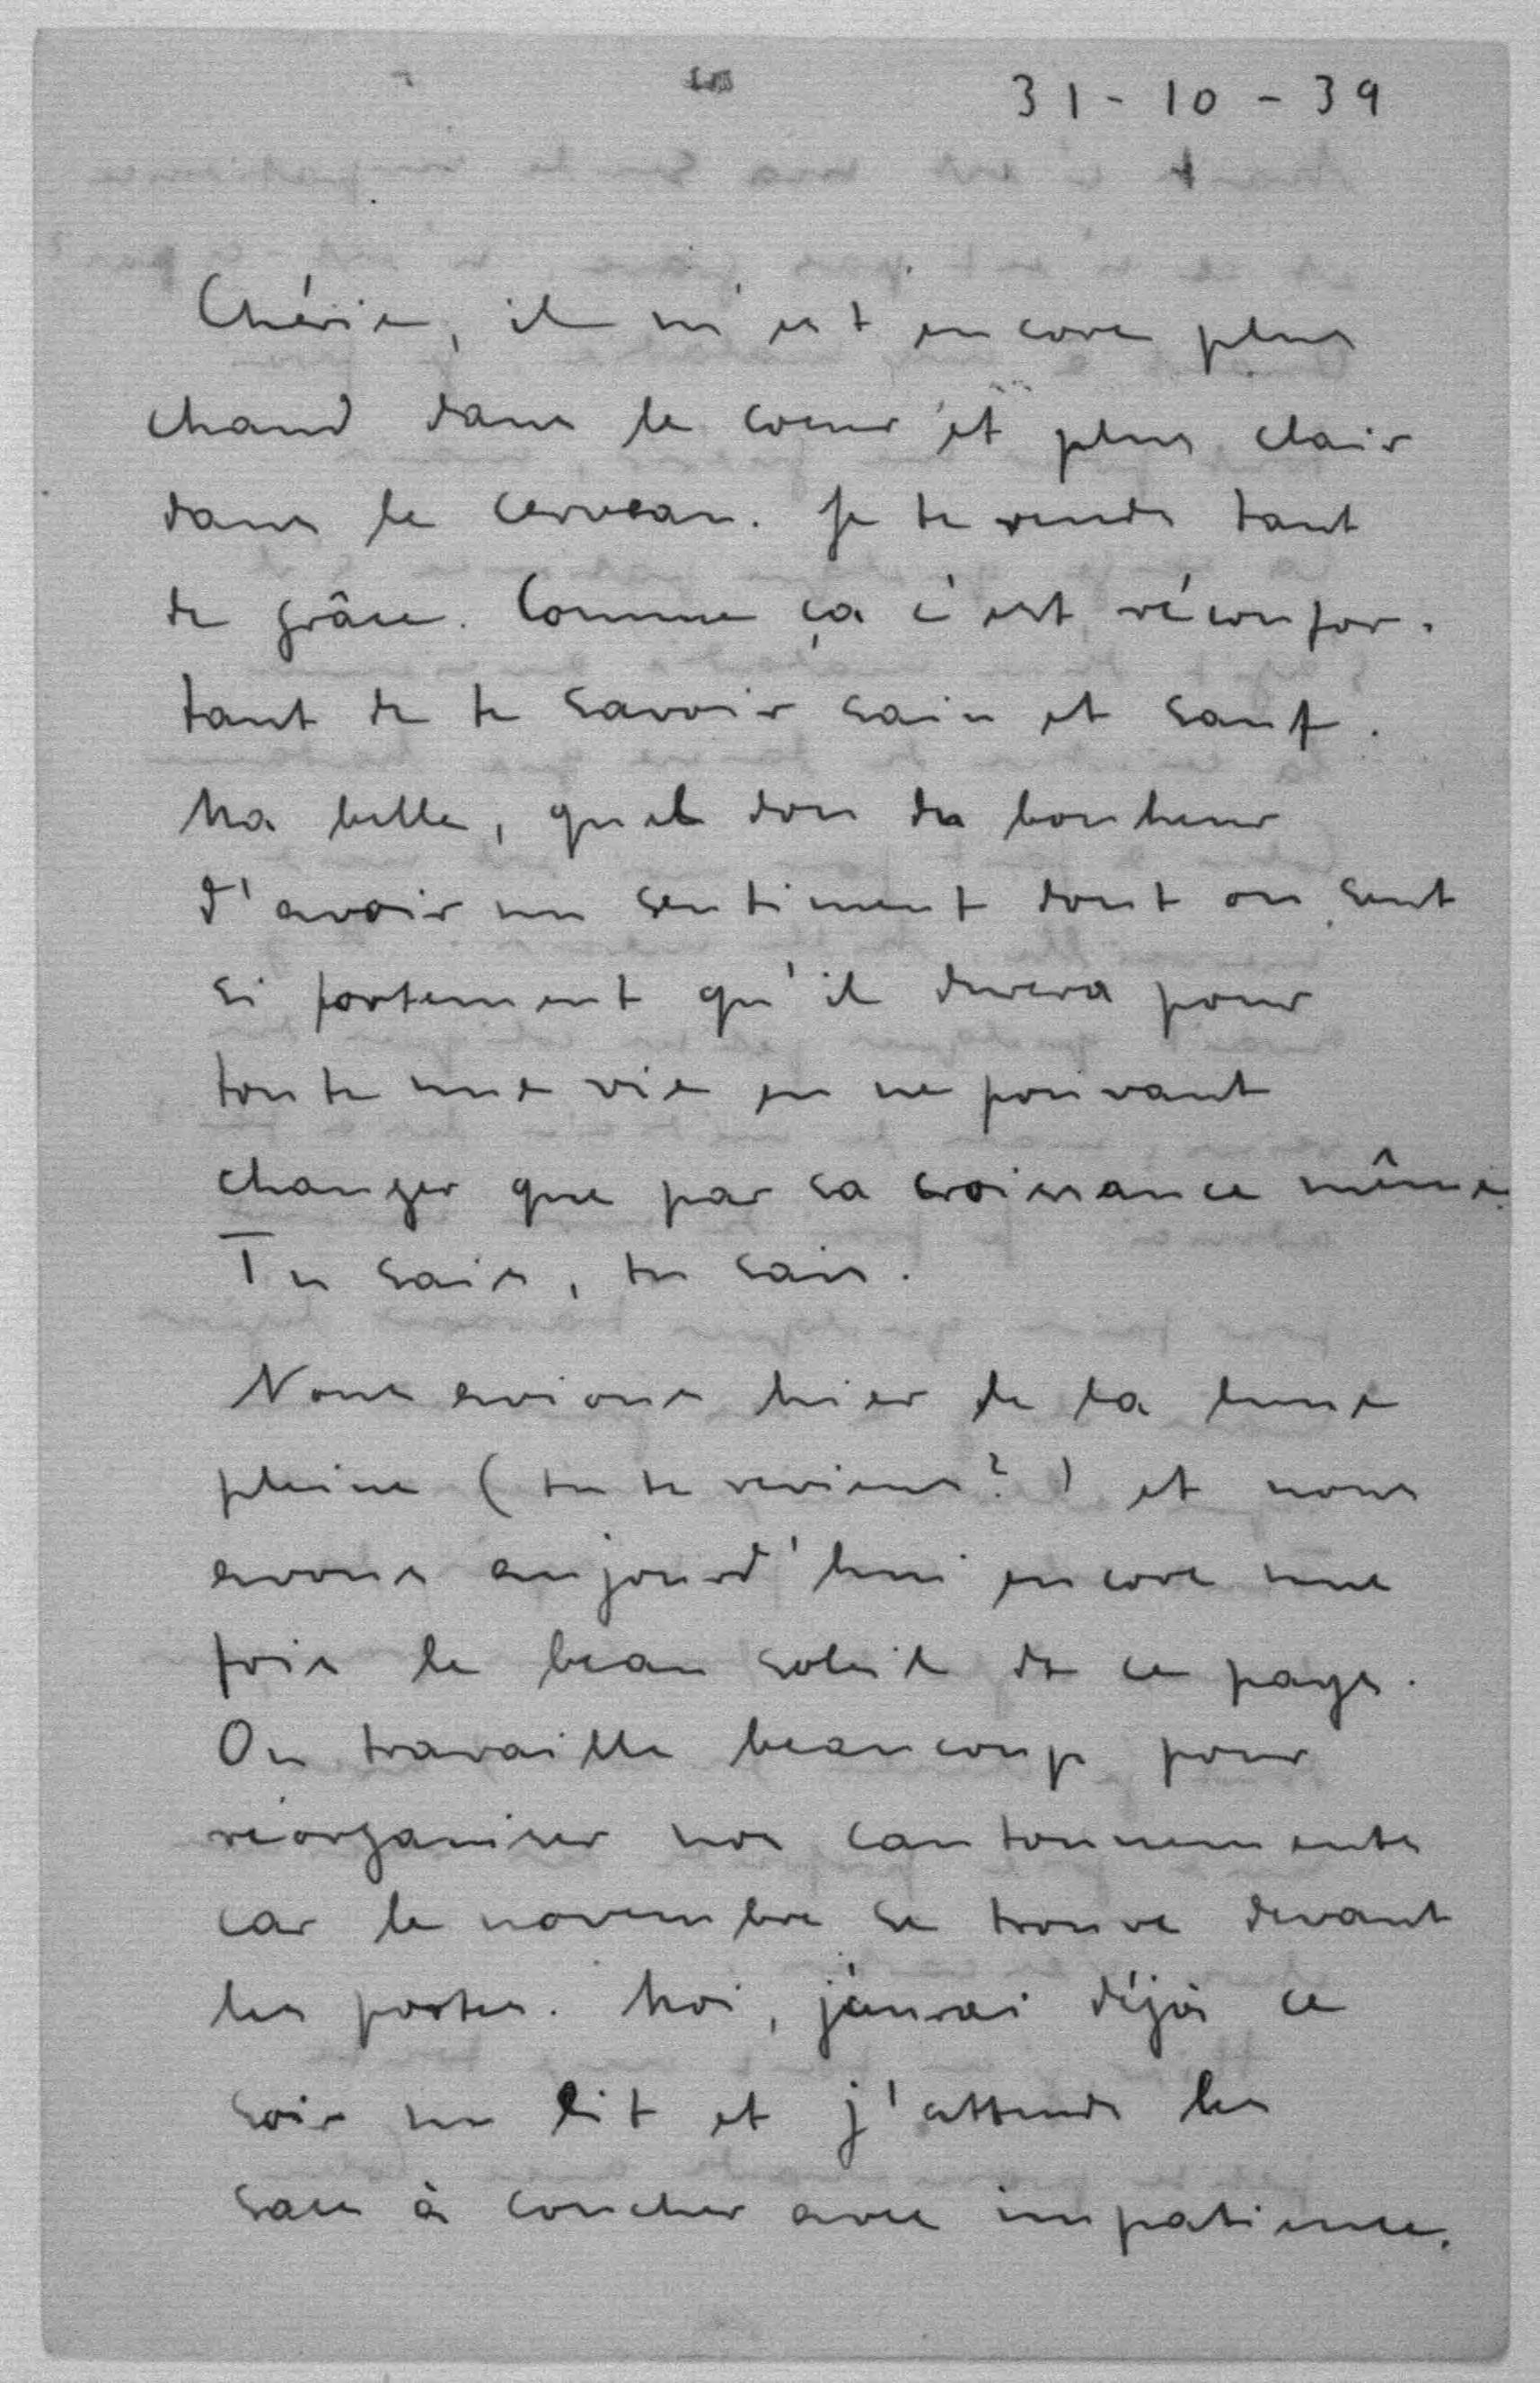 31-10-39
Chérie, il m'est encore plus
chaud dans le coeur et plus clair
dans le cerveau. Je te rends tant
de grâce. Comme ça c'est réconfor-
tant de te savoir sain et sauf.
Ma belle, quel don du bonheur
d'avoir un sentiment dont on sent
si fortement qu'il durera pour
toute une vie en ne pouvant
changer que par sa croissance même.
Tu sais, tu sais.
Nous avions hier de la lune
pleine (tu te reviens?) et nous
avons aujourd'hui encore une
fois le beau soleil de ce pays.
On travaille beaucoup pour
réorganiser nos cantonnements
car le novembre se trouve devant
les portes. Moi, j'aurai déjà ce
soir un lit et j'attends les
sacs à coucher avec impatience.